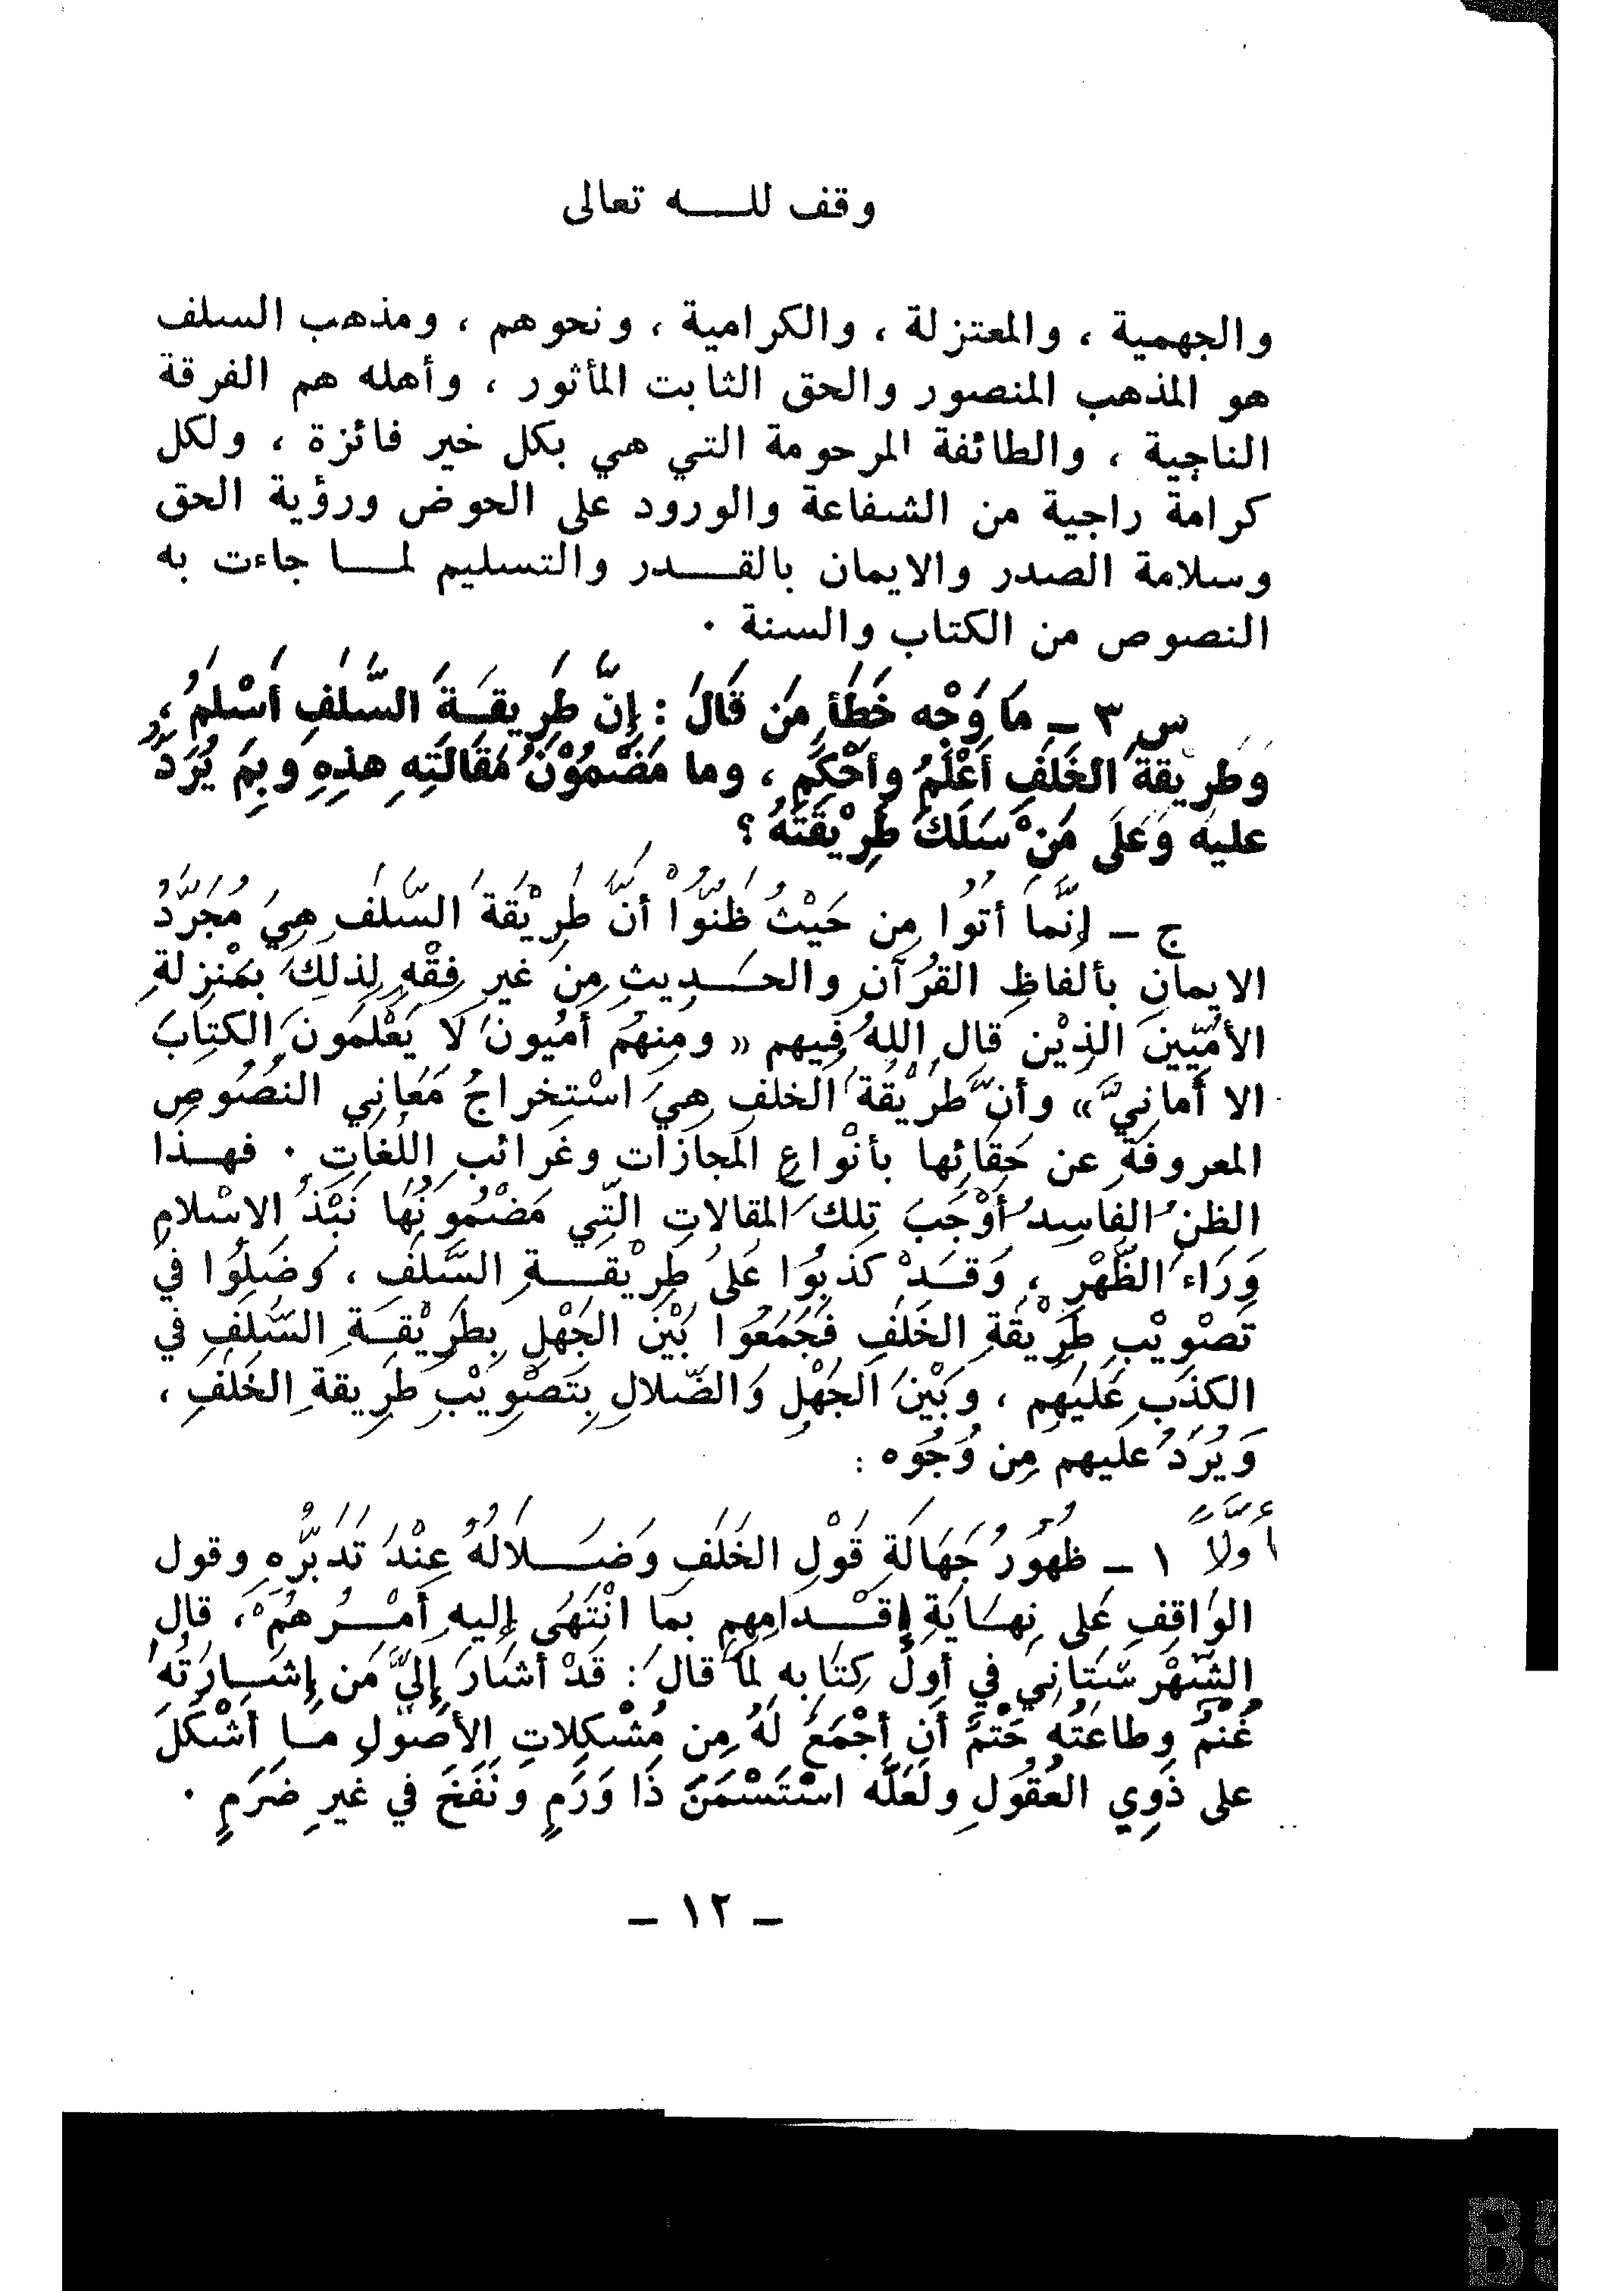 وقف للــه تعالى
والجهمية ، والمعتزلة ، والكرامية ، ونحوهم ، ومذهب السلف
هو المذهب المنصور والحق الثابت المأثور ، وأهله هم الفرقة
الناجية ، والطائفة المرحومة التي هي بكل خير فائزة ، ولكل
كرامة راجية من الشفاعة والورود على الحوض ورؤية الحق
وسلامة الصدر والايمان بالقــدر والتسليم لمــا جاءت به
النصوص من الكتاب والسنة .
س ٣ ـ مَا وَجْه خَطَأِ مَن قَالَ : إِنَّ طَرِيقَـةَ السَّلَفِ أَسْلَمُ ،
وَطَرِيقةَ الخَلَفِ أَعْلَمُ وأَحْكَم ، وما مَضْمُوْنُ مَقَالَتِهِ هذِهِ وَبِمَ يُرَدُّ
عليه وَعَلَى مَنْ سَلَكَ طَرِيْقَتَهُ ؟
ج ـ إِنَّما أُتُوا مِن حَيْثُ ظَنُّوْا أنَّ طَرِيْقةَ السَّلَفِ هِيَ مُجَرَّدُ
الايمانِ بألفاظِ القُرآنِ والحــدِيثِ مِن غيرِ فِقْهٍ لِذلِكَ بمَنْزِلةِ
الأمِّيِّينَ الذِيْن قال اللهُ فِيهم « ومِنهُم أمِّيونَ لَا يَعْلَمُونَ الكتابَ
الا أمانيَّ » وأنَّ طَرِيْقَةَ الخلفِ هِيَ اسْتِخراجُ مَعَانِي النصُوصِ
المعروفَةِ عن حَقَائِها بأنْواعِ المَجازَات وغَرائبِ اللغَاتِ . فهــذا
الظنُ الفاسِدُ أوْجَبَ تِلكَ المقالاتِ التّي مَضْمُونُهَا نَبْذُ الاسْلامِ
وَرَاء الظَّهْرِ ، وَقَـدْ كَذَبُوا عَلىَ طَرِيْقــةِ السَّلَفِ ، وَضَلوُا فيَ
تَصْوِيْبِ طَرِيْقَةِ الخَلَفِ فَجَمَعُوا بَيْنَ الجَهْلِ بِطَرِيْقَـةِ السَّلَفِ في
الكذَبِ عَلَيهِم ، وَبَيْنَ الجَهْلِ وَالضّلالِ بِتَصْوِيْبِ طَرِيقةِ الخَلَفِ ،
وَيُرَدُّ عَلَيهم مِن وُجُوه :
أولًا ١ ـ ظهُورُ جَهَالَةِ قَوْلِ الخَلَفِ وَضــلالُهُ عِنْدَ تَدَبُّرِهِ وقول
الوَاقِفِ عَلى نِهـايَةِ إِقْــدامِهِم بمَا انْتَهَى إليهِ أمْــرُهُمْ ، قال
الشّهْرسْتَانِيّ في أولِ كِتَابِه لمَّا قالَ : قَدْ أشَارَ إِليَّ مَن إِشــارَتُهُ
غُنْمٌ وطاعَتُه حَتْمٌ أن أجْمَعَ لَهُ مِن مُشْكِلاتِ الأصُولِ مـا أشْكَلَ
على ذَوِي العُقُولِ ولَعَلَّه اسْتَسْمَنَ ذَا وَرَمٍ ونَفَخَ في غَيرِ ضَرَمٍ .
ـ ١٢ ـ